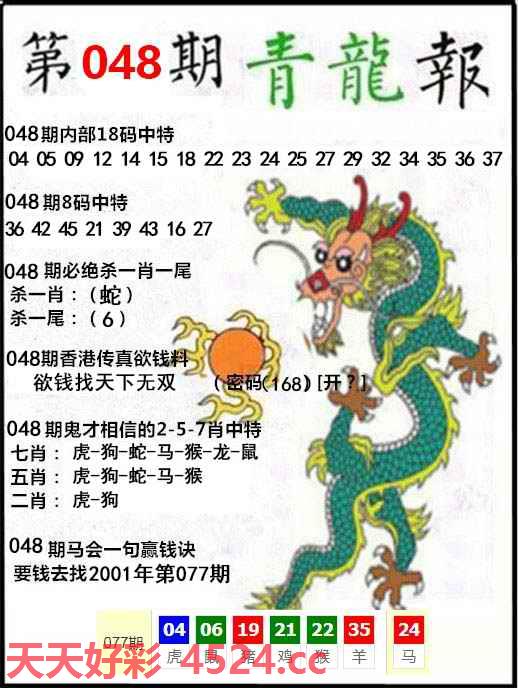 第048期 青龍報
048期内部18码中特
04 05 09 12 14 15 18 22 23 24 25 27 29 32 34 35 36 37
048期8码中特
36 42 45 21 39 43 16 27
048期必绝杀一肖一尾
杀一肖：（蛇）
杀一尾：（6）
048期香港传真欲钱料
欲钱找天下无双 （密码(168)[开？]
048期鬼才相信的2-5-7肖中特
七肖：虎-狗-蛇-马-猴-龙-鼠
五肖：虎-狗-蛇-马-猴
二肖：虎-狗
048期马会一句赢钱诀
要钱去找2001年第077期
077期 04 06 19 21 22 35 24
虎 鼠 猪 鸡 猴 羊 马
天天好彩 4524.cc